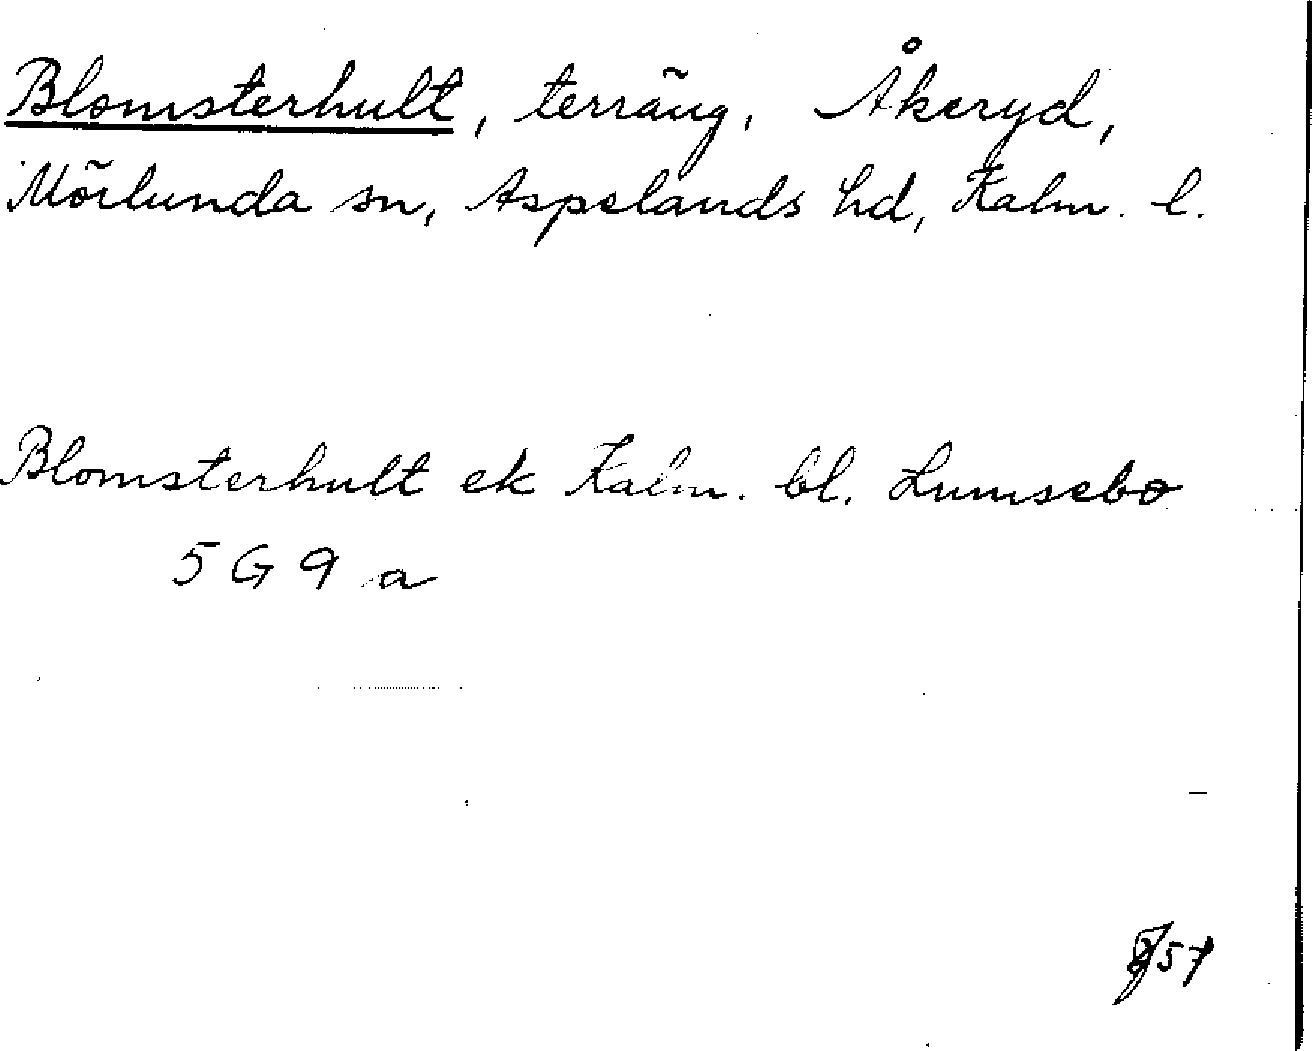 Blomsterhult, terräng, Åkeryd,
Mörlunda sn, Aspelands hd, Kalm. l.
Blomsterhult ek Kalm. bl. Lumsebo
5 G 9 a
57